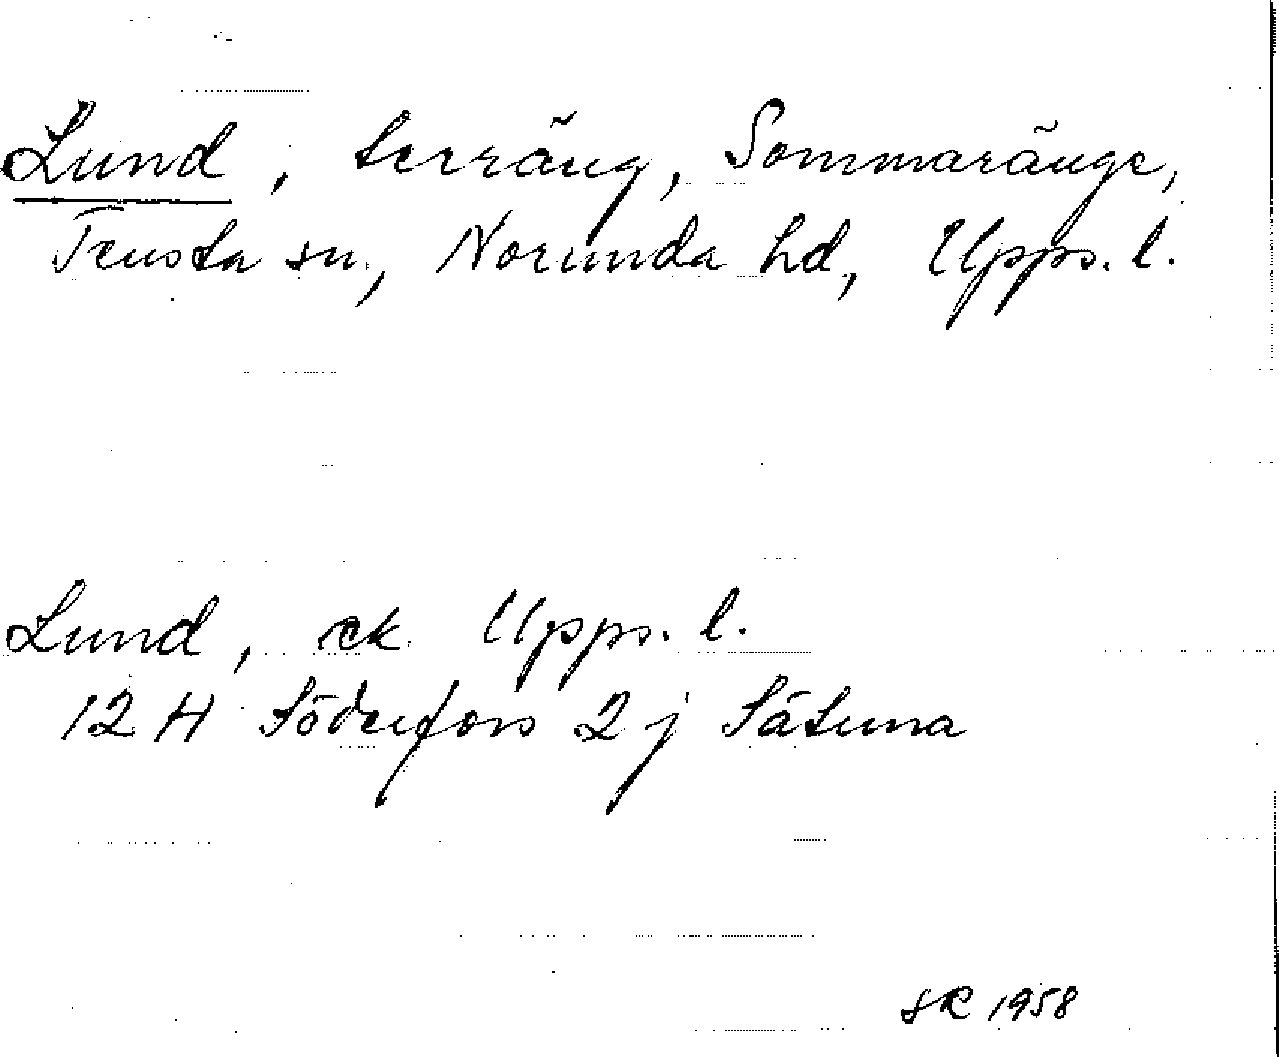 Lund, terräng, Sommaränge,
Tensta sn, Norunda hd, Upps. l.
Lund, ek. Upps. l.
12 H Söderfors 2 j Sätuna
SR 1958